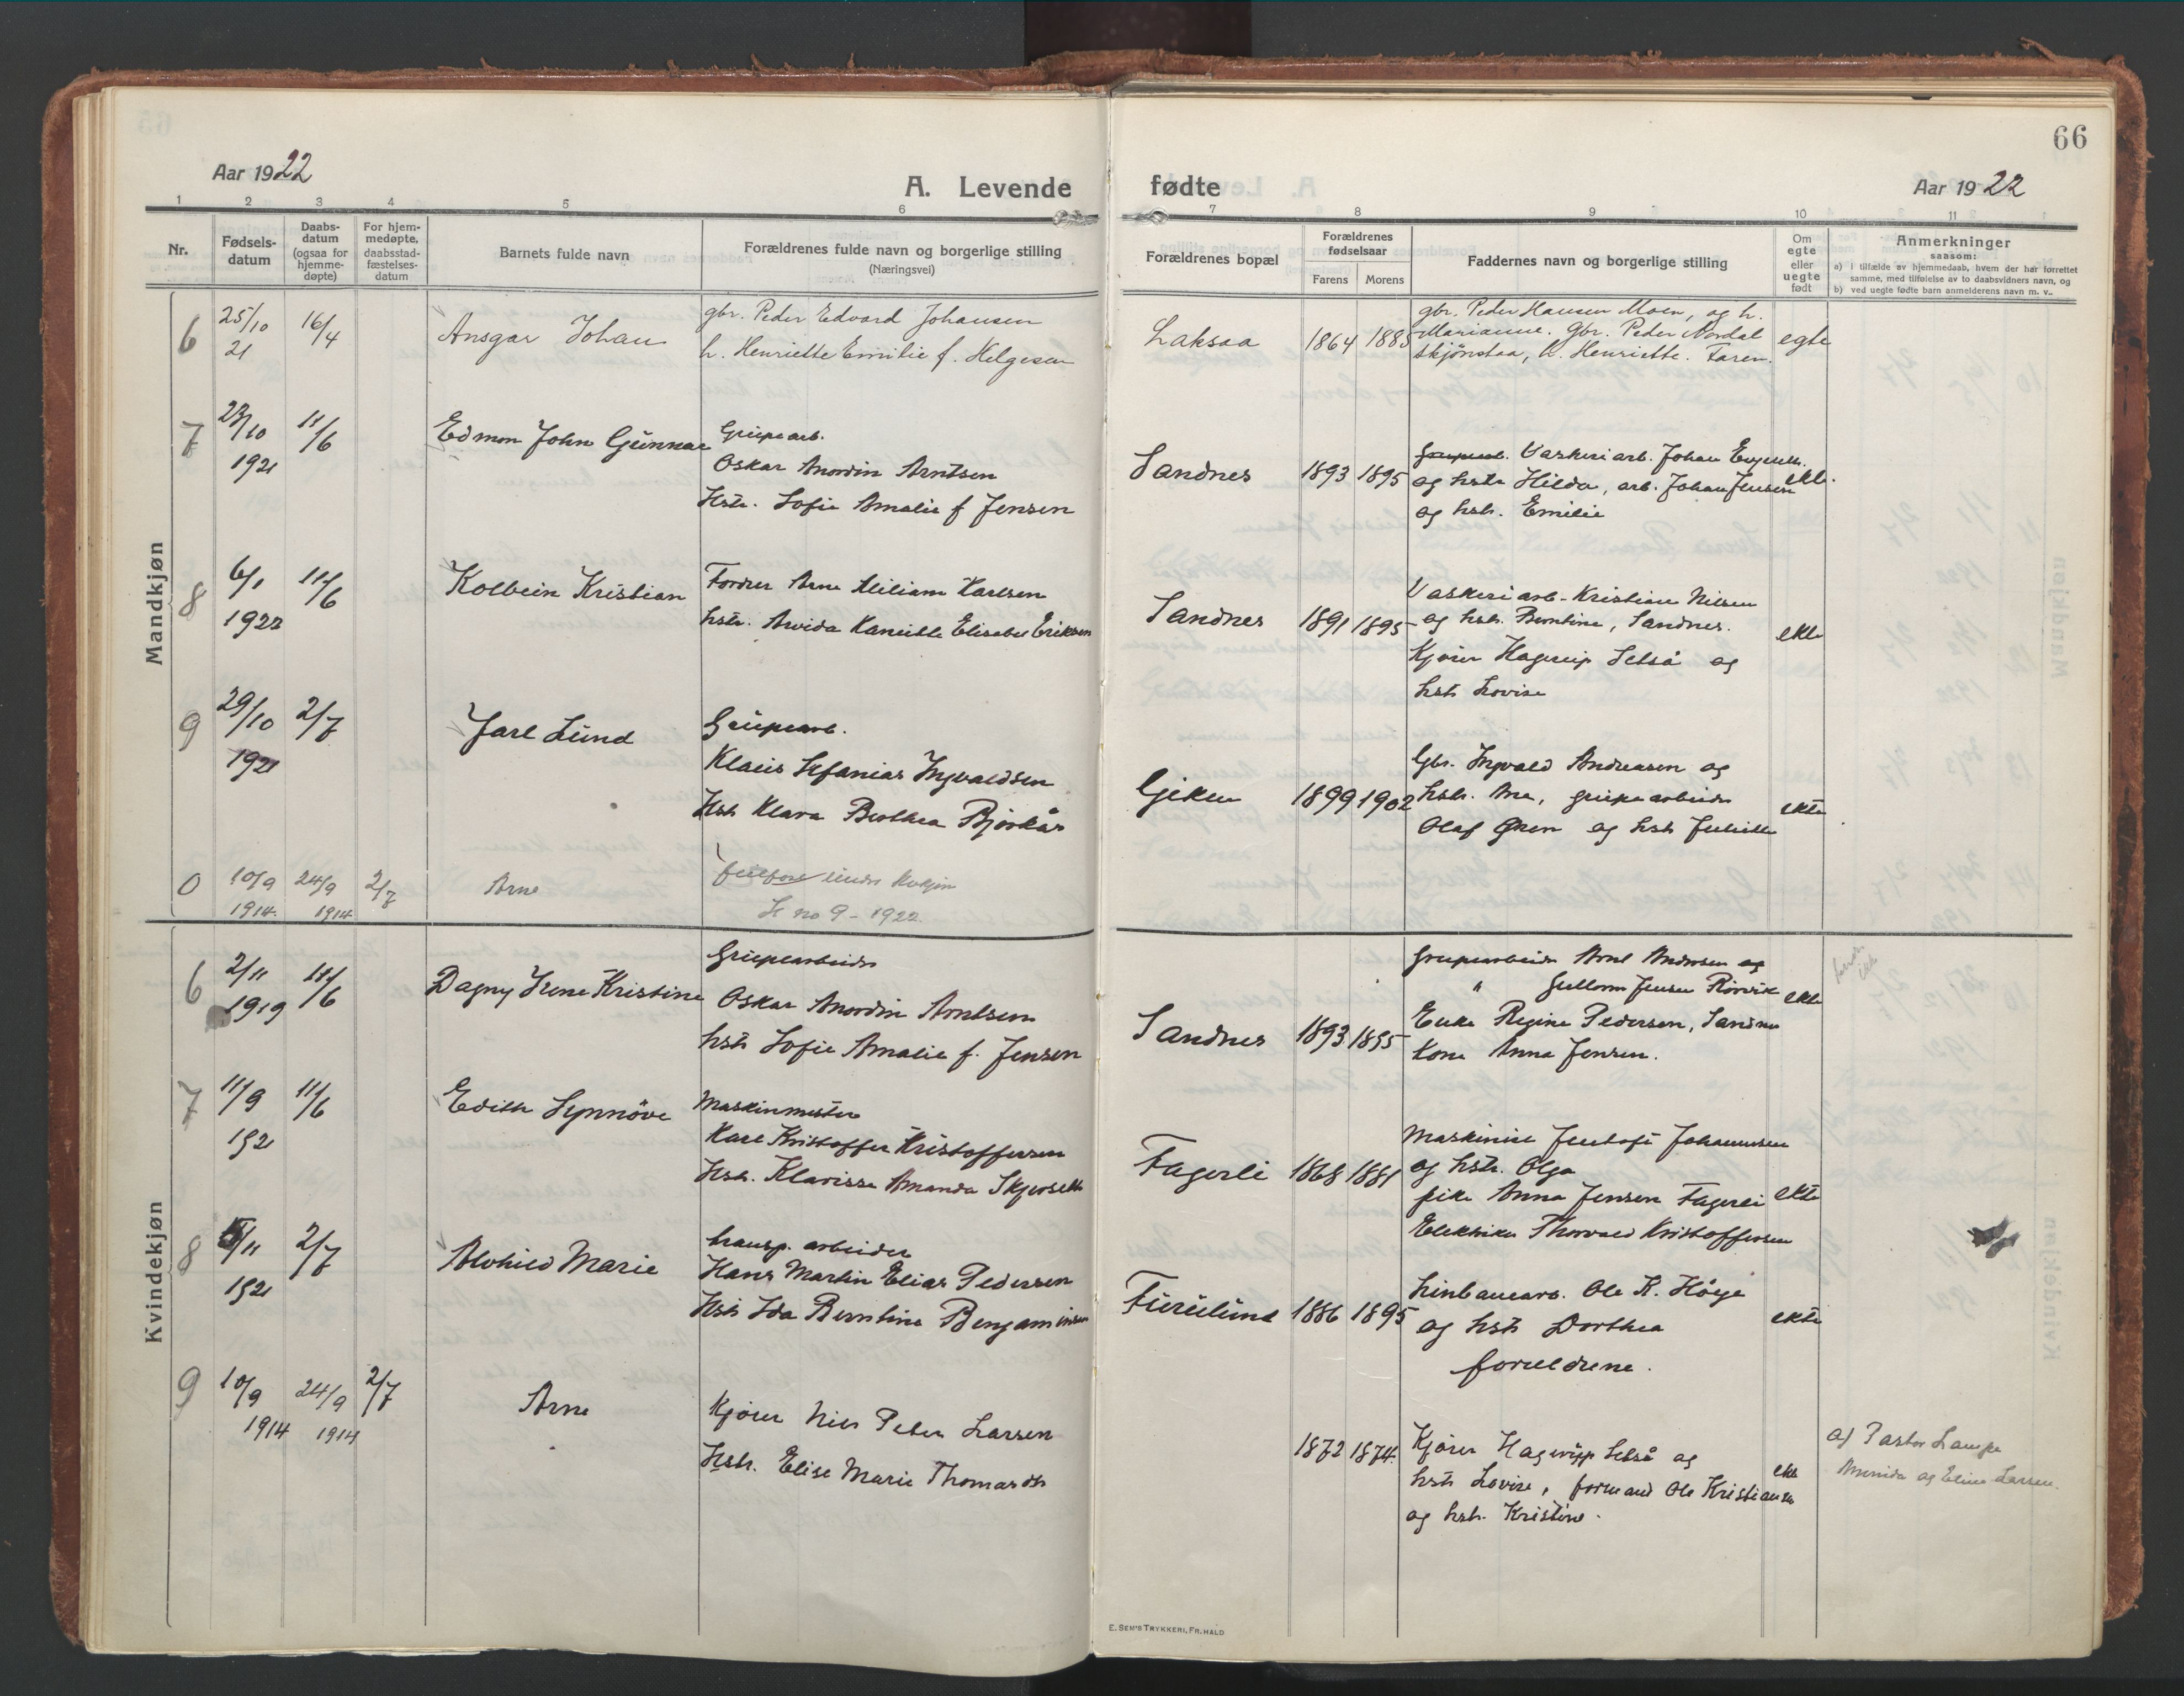 66
Aar 1922
A. Levende
fødte
Aar 1922
1 2 3 4 5 6 7 8 9 10 11
Nr.
Fødsels-
datum
Daabs-
datum
(ogsaa for
hjemme-
døpte)
For hjem-
medøpte,
daabsstad-
fæstelses-
datum
Barnets fulde navn
Forældrenes fulde navn og borgerlige stilling
(Næringsvei)
Forældrenes bopæl
Forældrenes
fødselsaar
Farens Morens
Faddernes navn og borgerlige stilling
Om
egte
eller
uegte
født
Anmerkninger
saasom:
a) i tilfælde av hjemmedaab, hvem der har forrettet
samme, med tilføielse av to daabsvidners navn, og
b) ved uegte fødte barn anmelderens navn m. v..
Mandkjøn
6 25/10 21 16/4 Ansgar Johan
gbr. Peder Edvard Johansen
h. Henriette Emilie f. Helgesen
Laksaa 1864 1885
gbr. Peder Hansen Moen, og h.
Marianne. Gbr. Peder Nordal
Skjønstaa, h. Henriette. Faren.
egte
7 23/10 1921 11/6 Edmon John Gunnar
Grubearb.
Oskar Anordin Arntsen
Hstr. Sofie Amalie f Jensen
Sandnes 1893 1895
Vaskeriarb. Johan
og hstr Hilda, arb. Johan Jensen
og hstr. Emilie
ekte
8 6/1 1922 11/6 Kolbein Kristian
Arne Karlsen
hstr. Arvida Elisabet Eriksen
Sandnes 1891 1895
Vaskeriarb. Kristian Nilsen
og hstr. Berntine, Sandnes.
Kjører Hagerup Setså og
hstr Lovise
ekte
9 29/10 1921 2/7 Jarl Lund
Grubearb.
Klaus Sefanias Ingvaldsen
Hstr Klara Berthea Bjørkås
Gjeken 1899 1902
Gbr. Ingvald Andreasen og
hstr. Ane, grubearbeider
Olaf og hstr
ekte
0 10/9 1914. 24/9 1914 2/7 Arne
under
no 9 - 1922.
Kvindekjøn
6 2/11 1919 11/6 Dagny Irene Kristine
Grubearbeider
Oskar Anordin Arntsen
hstr Sofie Amalie f. Jensen
Sandnes 1893 1895
Grubearbeider Arnt Andersen og
" Jensen Rørvik
Enke Regine Pedersen, Sandnes
Kone Anna Jensen.
ekte
7 11/9 1921 11/6 Edith Synnöve
Maskinmester
Karl Kristoffer Kristoffersen
Hstr. Klarissa Amanda
Fagerli 1868 1881
Maskinist Johannesen
og hstr. Olga
pike Anna Jensen Fagerli
Elektriker Thorvald Kristoffersen
ekte
8 5/11 1921 2/7 Alvhild Marie
transp. arbeider
Hans Martin Elias Pedersen
Hstr Ida Berntine Benjaminsen
Furulund 1886 1895
Linbanearb. Ole K.
og hstr Dorthea
foreldrene.
ekte
9 10/9 1914 24/9 1914 2/7 Arne
Kjører Nils Peter Larsen
Hstr. Elise Marie Thomasdtr
1872 1874.
Kjører Hagerupp Setså og
hstr Lovise, formand Ole Kristiansen
og hstr. Kristine.
ekte
a) Pastor Lampe
og Eline Larsen.
E. SEM'S TRYKKERI, FR.HALD